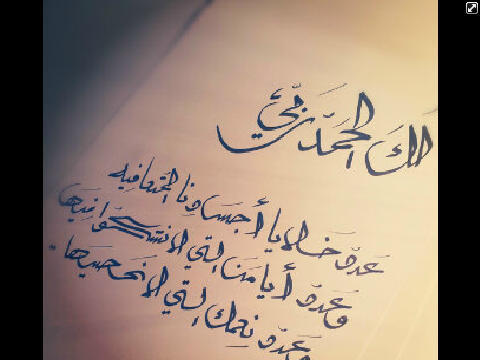 لكَ الحَمدُ ربّي
عدد خلايا أجسادنا المتعافيه
وعدد أيامنا التي لا نشكو فيها
وعدد نعمك التي لا نحصيها.